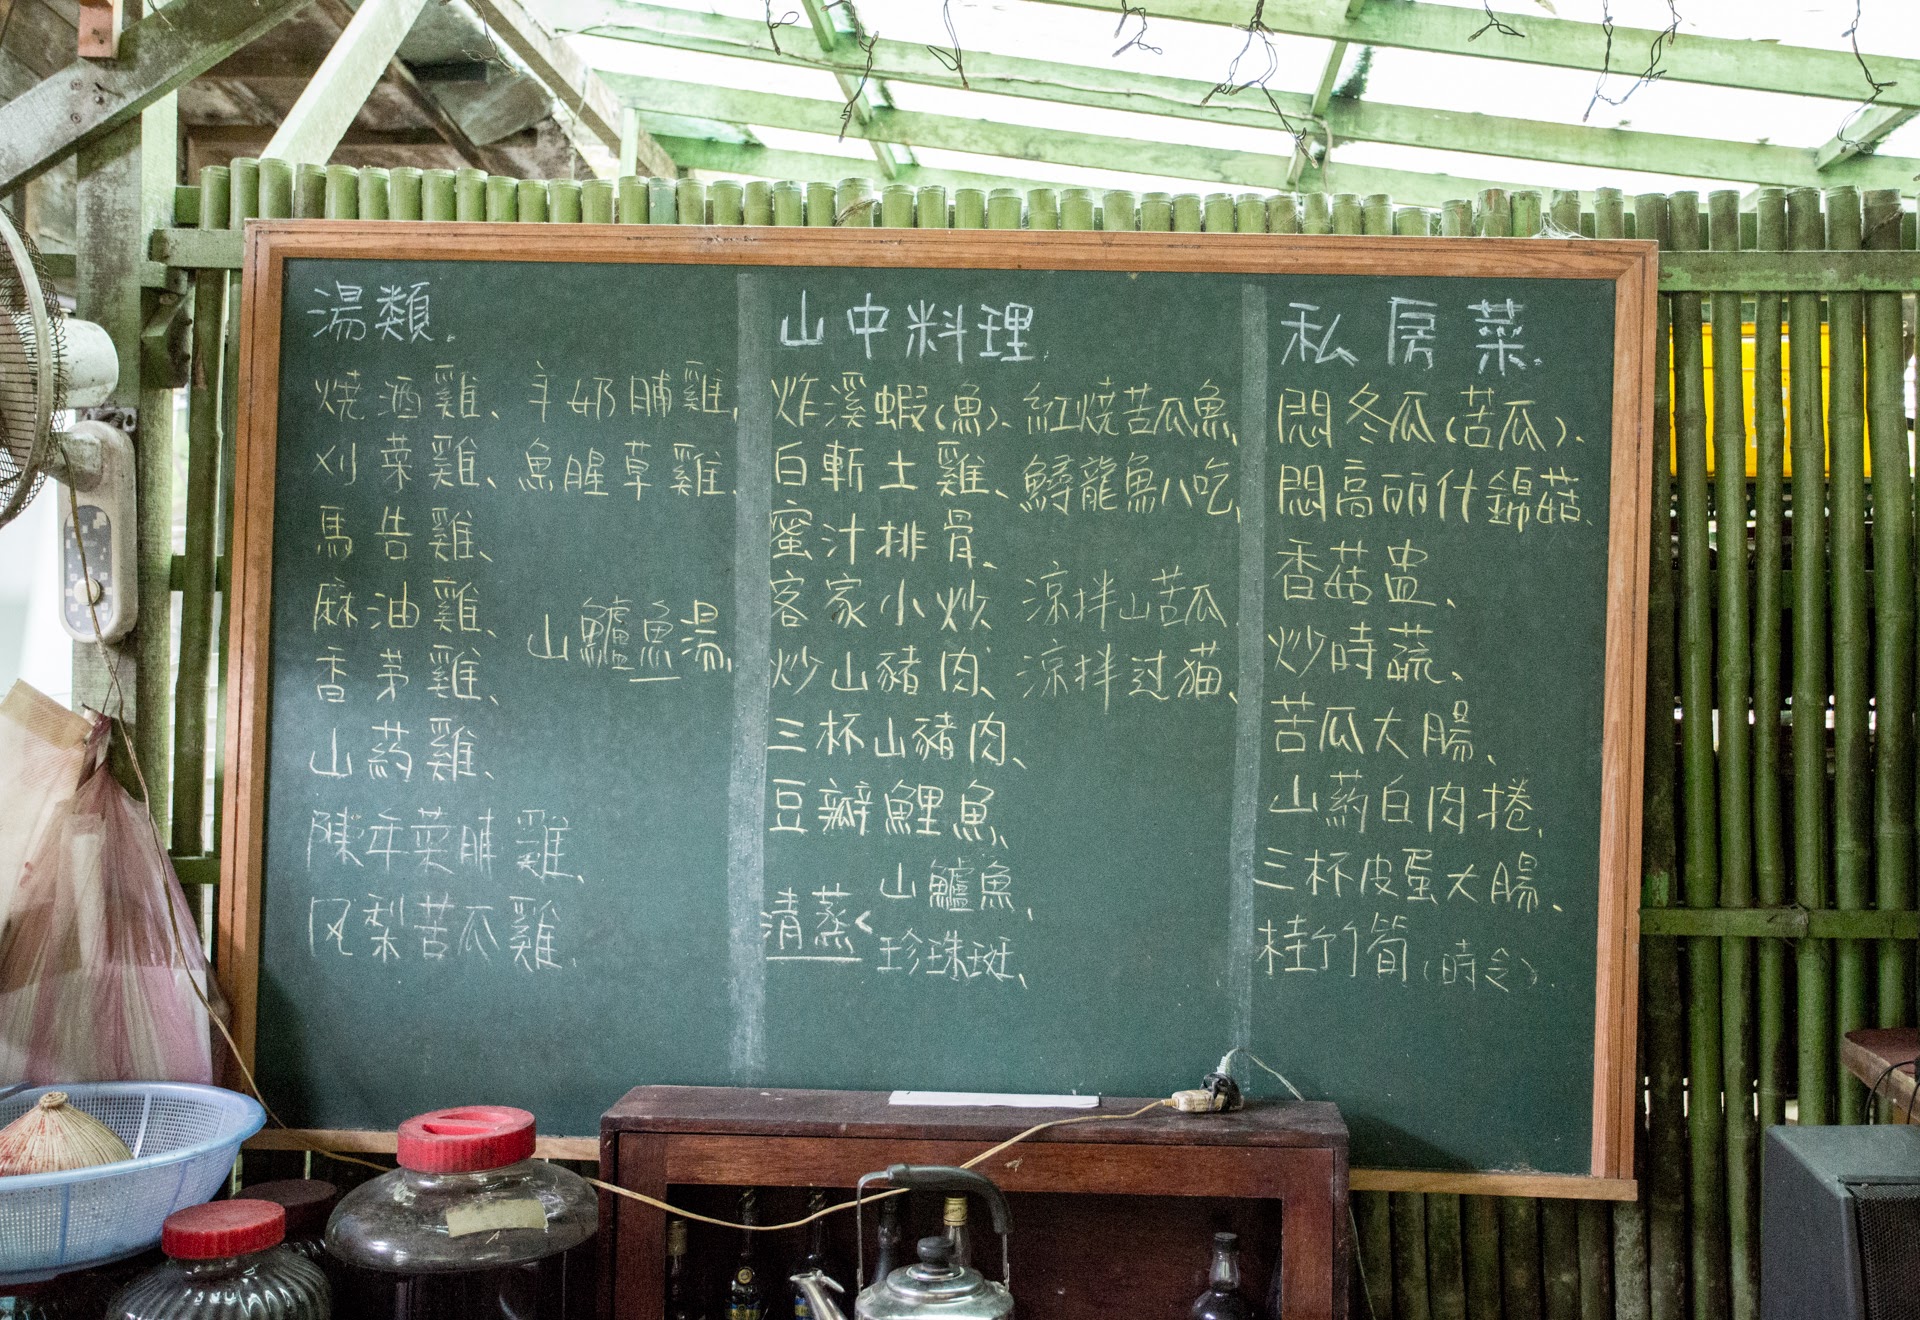 湯類.
燒酒雞、
刈菜雞、
馬告雞、
麻油雞、
香茅雞、
山药雞、
陳年菜脯雞、
风梨苦瓜雞.
羊奶脯雞、
魚腥草雞、
山鱸魚湯、
山中料理.
炸溪蝦(魚)、
白斬土雞、
蜜汁排骨、
客家小炒
炒山豬肉、
三杯山豬肉、
豆瓣鯉魚、
清蒸<
山鱸魚、
珍珠斑、
紅燒苦瓜魚、
鱘龍魚八吃、
涼拌山苦瓜
涼拌过猫、
私房菜.
悶冬瓜(苦瓜)、
悶高丽什錦菇、
香菇盅、
炒時蔬、
苦瓜大腸、
山药白肉捲、
三杯皮蛋大腸、
桂竹筍(時令).